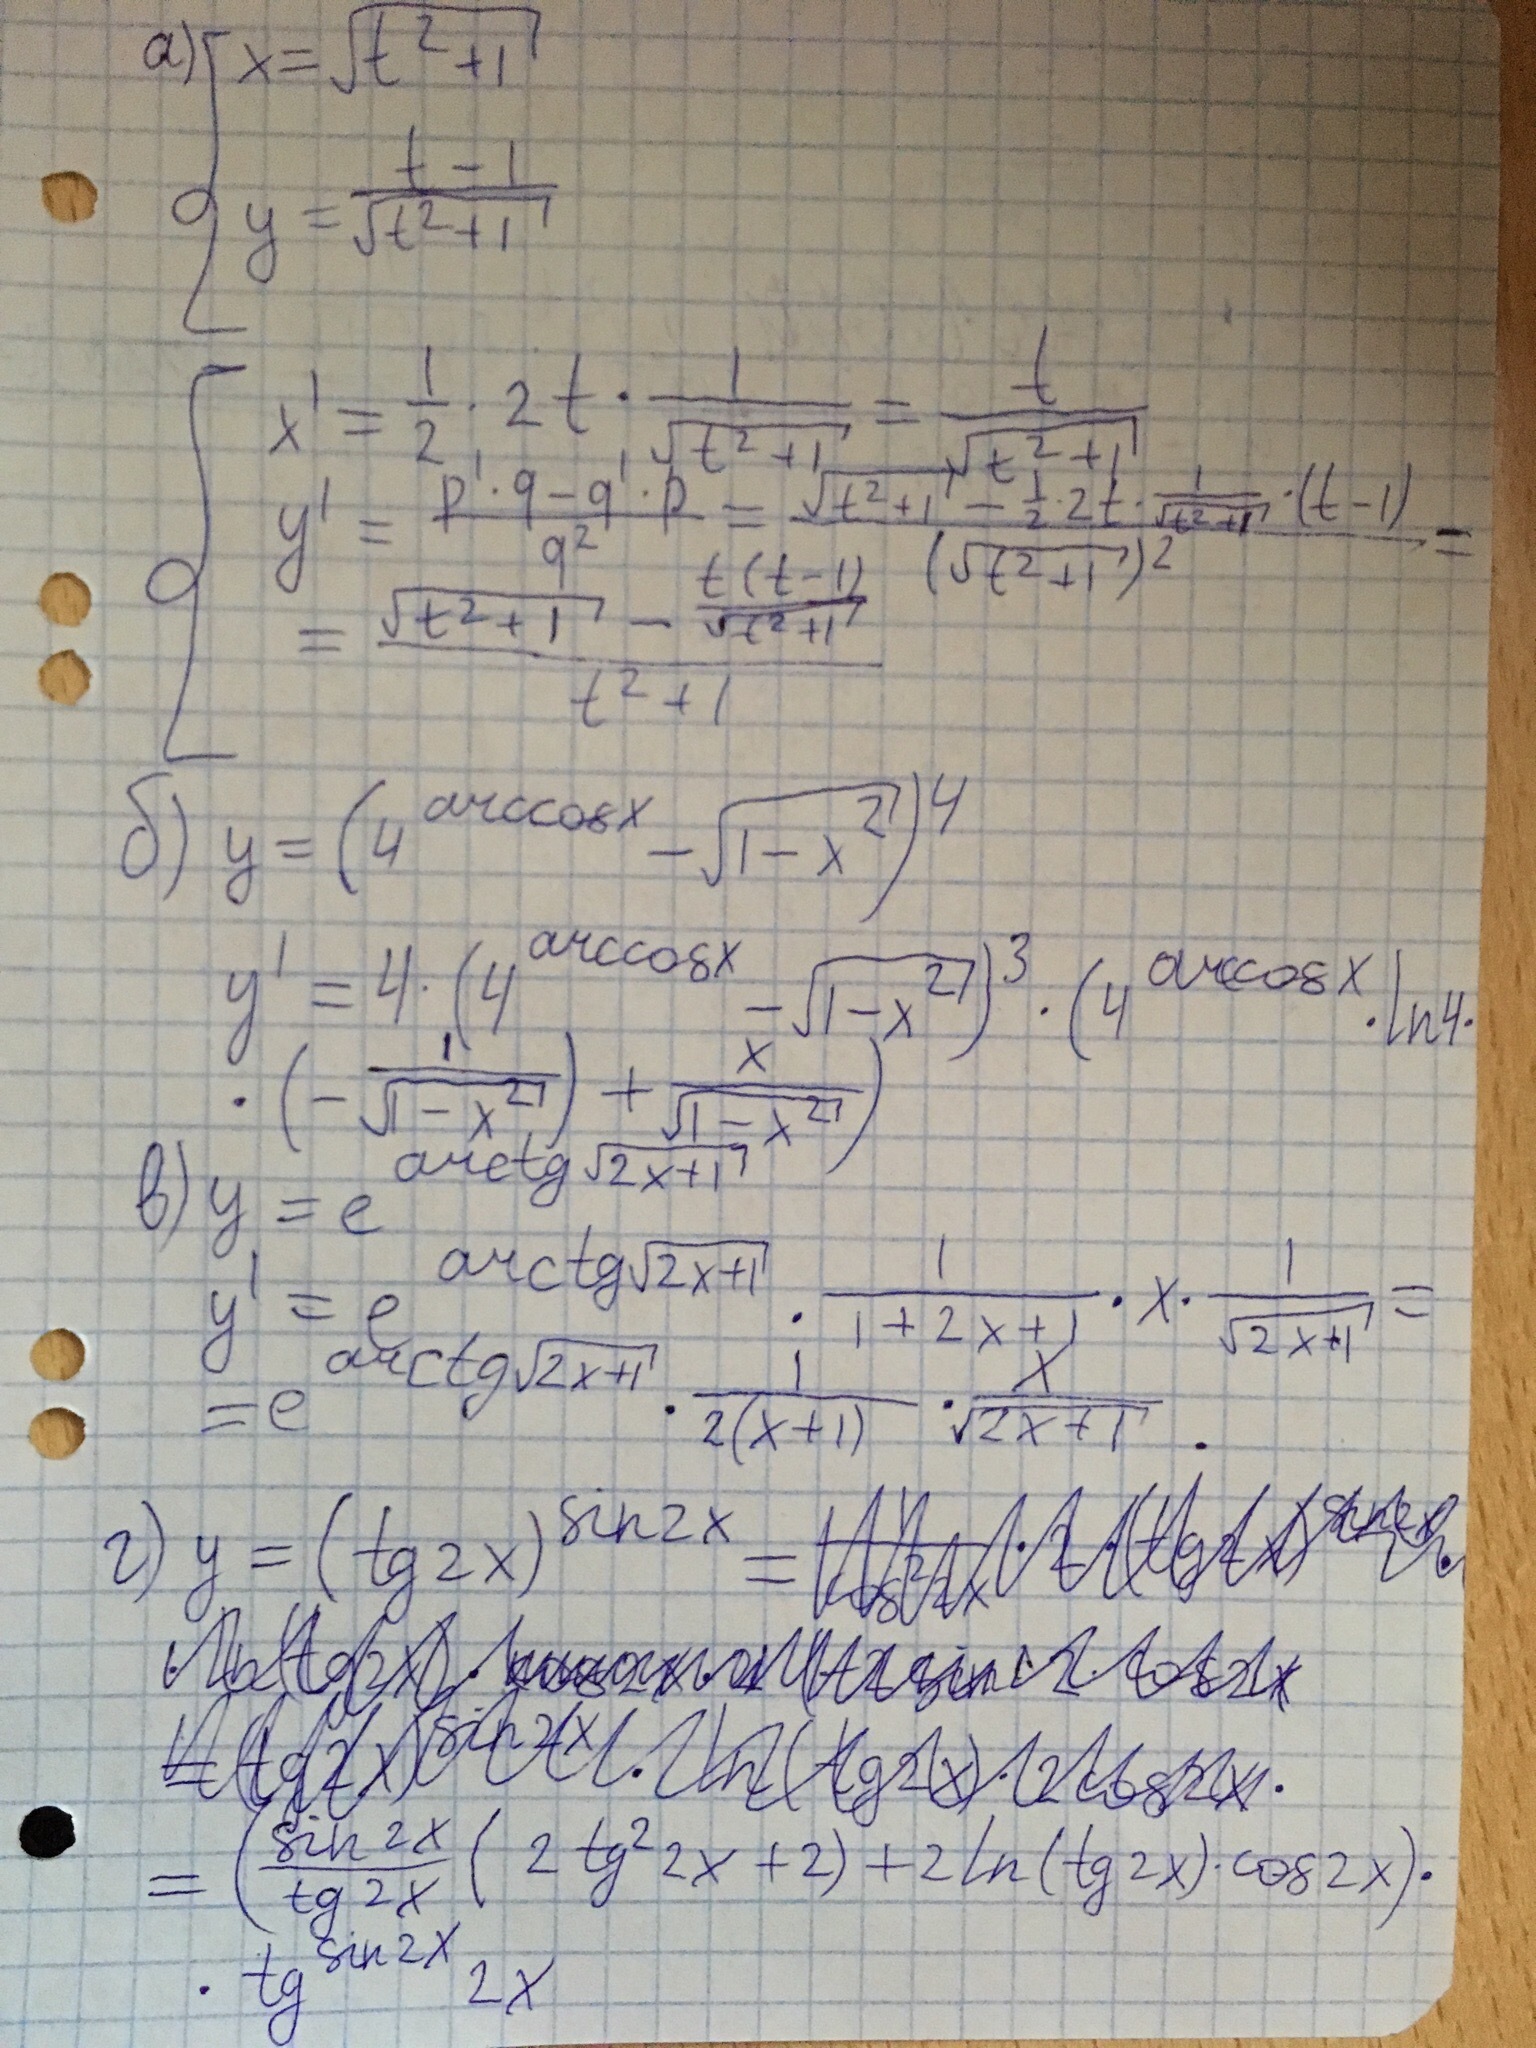 а) x = √(t² + 1)
y = (t − 1)/√(t² + 1)
x' = 1/2 · 2t · 1/√(t² + 1) = t/√(t² + 1)
y' = (p' · q − q' · p)/q² = (√(t² + 1) − 1/2 · 2t · 1/√(t² + 1) · (t − 1))/(√(t² + 1))² =
= (√(t² + 1) − t(t − 1)/√(t² + 1))/(t² + 1)
б) y = (4^(arccosx) − √(1 − x²))⁴
y' = 4 · (4^(arccosx) − √(1 − x²))³ · (4^(arccosx) · ln4 ·
· (− 1/√(1 − x²)) + x/√(1 − x²))
в) y = e^(arctg√(2x+1))
y' = e^(arctg√(2x+1)) · 1/(1 + 2x + 1) · x · 1/√(2x+1) =
= e^(arctg√(2x+1)) · 1/(2(x+1)) · x/√(2x+1) .
г) y = (tg2x)^(sin2x) =
= (sin2x/tg2x (2tg²2x + 2) + 2ln(tg2x) · cos2x) ·
· tg^(sin2x) 2x